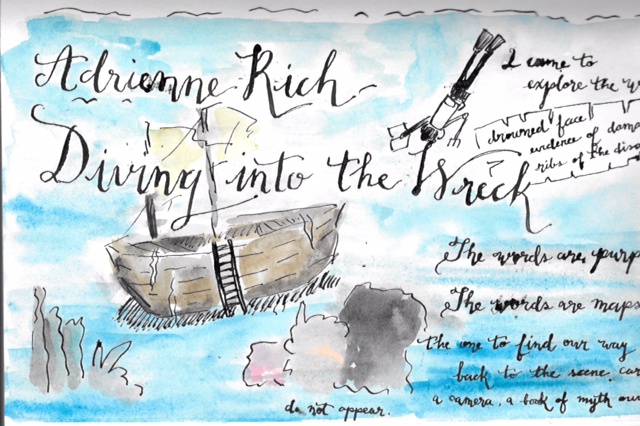 Adrienne Rich
Diving into the Wreck
I came to
explore the w
drowned face
evidence of dama
ribs of the disa
The words are purp
The words are maps
the one to find our way
back to the scene, car
a camera, a book of myth
do not appear.